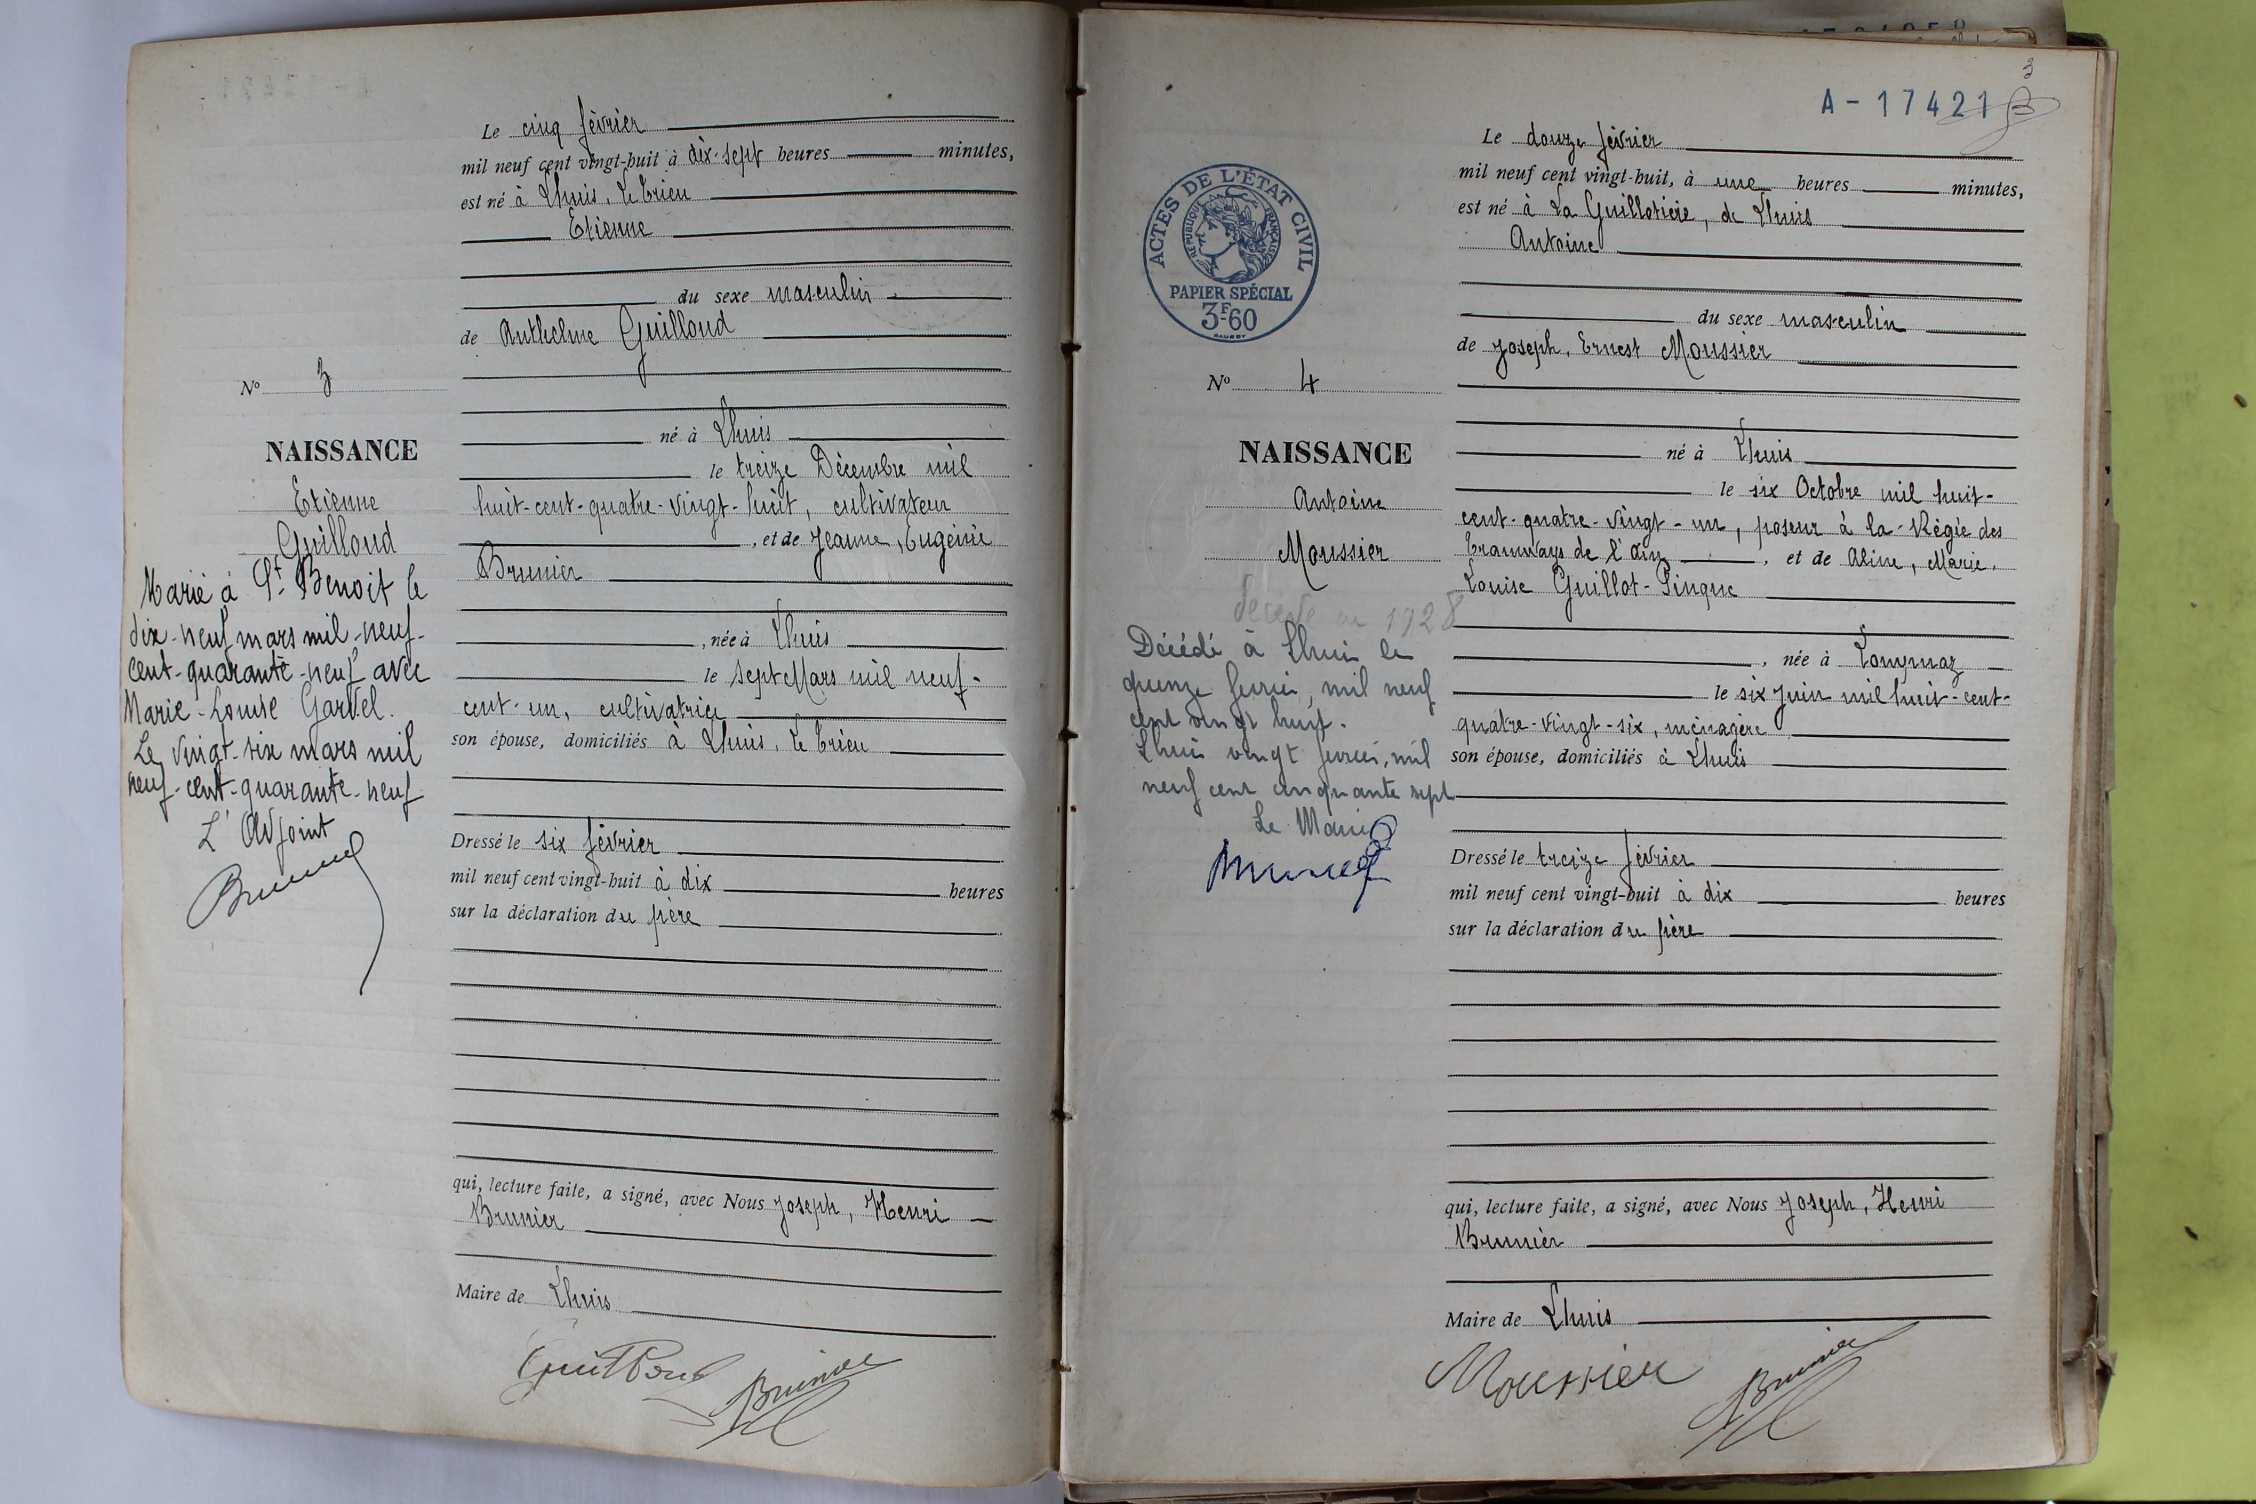 Le cinq février
mil neuf cent vingt-huit à dix-sept heures minutes,
est né à Lhuis, le Crieu
Etienne
du sexe masculin
de Anthelme Guilloud
né à Lhuis
le treize Décembre mil
huit-cent-quatre-vingt-huit, cultivateur
, et de Jeanne, Eugénie
Brunier
, née à Lhuis
le sept Mars mil neuf-
cent-un, cultivatrice
son épouse, domiciliés à Lhuis, le Crieu
Dressé le six février
mil neuf cent vingt-huit à dix heures
sur la déclaration du père
qui, lecture faite, a signé, avec Nous Joseph, Henri
Brunier
Maire de Lhuis
Guilloud Brunier
No 3
NAISSANCE
Etienne
Guilloud
Marié à St Benoit le
dix-neuf mars mil-neuf-
cent-quarante-neuf avec
Marie-Louise
Le vingt-six mars mil
neuf-cent-quarante-neuf
L'Adjoint
3
A-17421
Le douze février
mil neuf cent vingt-huit, à une heures minutes,
est né à La Guilloterie, de Lhuis
Antoine
du sexe masculin
de Joseph, Ernest Moussier
né à Lhuis
le six Octobre mil huit-
cent-quatre-vingt-un, poseur à la Régie des
tramways de l'Ain, et de Aline, Marie,
Louise Guillot-Pingue
, née à Lompnaz
le six Juin mil huit-cent-
quatre-vingt-six, ménagère
son épouse, domiciliés à Lhuis
Dressé le treize février
mil neuf cent vingt-huit à dix heures
sur la déclaration du père
qui, lecture faite, a signé, avec Nous Joseph, Henri
Brunier
Maire de Lhuis
Moussier Brunier
ACTES DE L'ÉTAT CIVIL
RÉPUBLIQUE FRANÇAISE
PAPIER SPÉCIAL
3F-60
No 4
NAISSANCE
Antoine
Moussier
décédé en 1928
Décédé à Lhuis le
quinze février, mil neuf
cent vingt huit.
Lhuis vingt février, mil
neuf cent cinquante sept
Le Maire